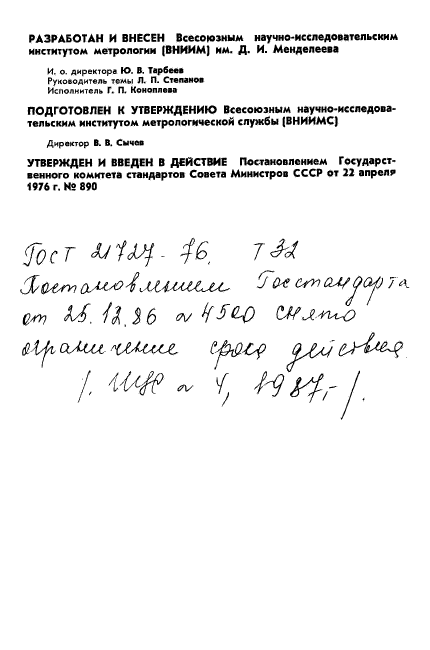 РАЗРАБОТАН И ВНЕСЕН Всесоюзным научно-исследовательским
институтом метрологии (ВНИИМ) им. Д. И. Менделеева
И. о. директора Ю. В. Тарбеев
Руководитель темы Л. П. Степанов
Исполнитель Г. П. Коноплева
ПОДГОТОВЛЕН К УТВЕРЖДЕНИЮ Всесоюзным научно-исследова-
тельским институтом метрологической службы (ВНИИМС)
Директор В. В. Сычев
УТВЕРЖДЕН И ВВЕДЕН В ДЕЙСТВИЕ Постановлением Государст-
венного комитета стандартов Совета Министров СССР от 22 апреля
1976 г. № 890
ГОСТ 21727-76. Т32
Постановлением Госстандарта
от 25.12.86 N 4500 снято
ограничение срока действия
/. ИУС N 4, 1987,- /.